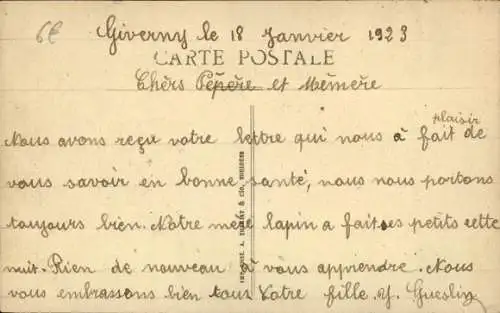 6€
Giverny le 18 Janvier 1923
CARTE POSTALE
Chèrs Pépère et Mémère
plaisir
Nous avons reçu votre lettre qui nous à fait de
vous savoir en bonne santé, nous nous portons
toujours bien. Notre mère lapin a fait ses petits cette
nuit. Rien de nouveau à vous apprendre. Nous
vous embrassons bien tous Votre fille. Y. Gueslin